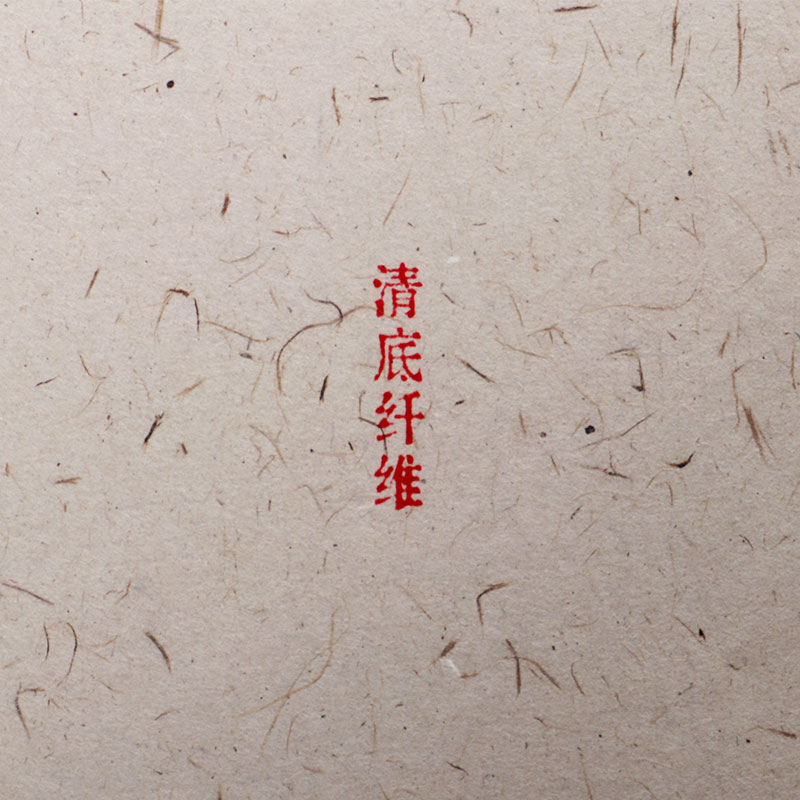 清底纤维